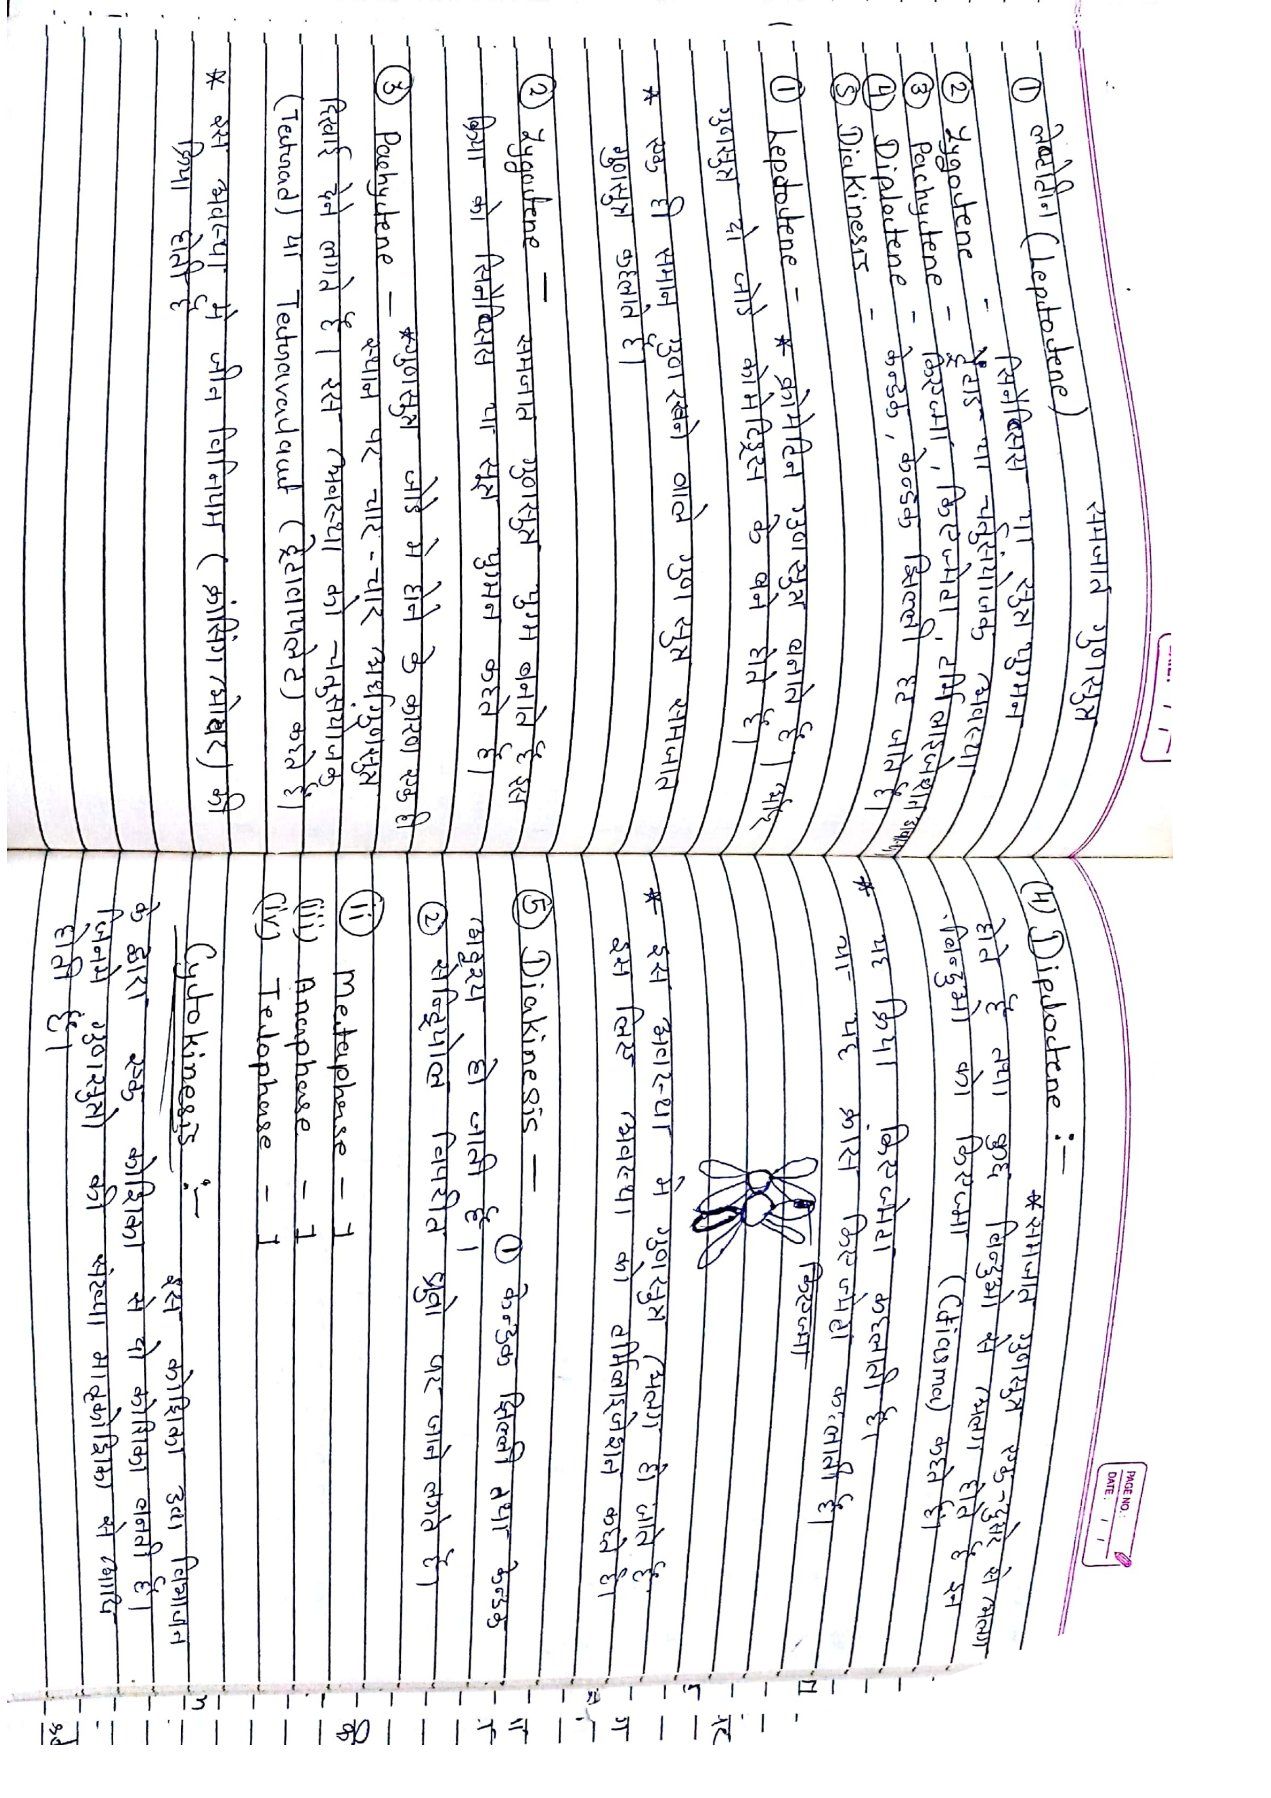 समजात गुणसुत्र
① लेप्टोटीन (Leptotene)
सिनेप्सिस या सुत्र युग्मन
② Zygotene - टेट्राड या चतुसयोजक अवस्था
③ Pachytene - किएज्मा, किएज्मेटा, टर्मिलाइजेशन
④ Diplotene - केन्द्रक, केन्द्रक झिल्ली हट जाते है।
⑤ Diakinesis
① Leptotene - * क्रोमेटिन गुणसुत्र बनाते है। और
गुणसुत्र दो जोडे क्रोमेटिड्स के बने होते है।
* एक ही समान गुण रखने वाले गुण सुत्र समजात
गुणसुत्र कहलाते है।
② Zygotene — समजात गुणसुत्र युग्म बनाते है इस
क्रिया को सिनेप्सिस या सूत्र युग्मन कहते है।
③ Pachytene — * गुणसुत्र जोडे मे होने के कारण एक ही
स्थान पर चार-चार अर्धगुणसुत्र
दिखाई देने लगते है। इस अवस्था को चतुसयोजक
(Tetrad) या Tetravalent (ट्रेटावायलेंट) कहते है।
* इस अवस्था मे जीन विनिमय (क्रांसिंग ओवर) की
क्रिया होती है
PAGE NO.:
DATE: / /
(4) Diplotene :—
* समजात गुणसुत्र एक-दुसरे से अलग
होते है तथा कुछ बिन्दुओ से अलग होते है इन
बिन्दुओ को किएज्मा (Chiasma) कहते है।
* यह क्रिया किएज्मेटा कहलाती है।
या यह क्रास किएज्मेटा कहलाती है।
किएज्मा
* इस अवस्था मे गुणसुत्र अलग हो जाते है
इस लिए अवस्था को टर्मिलाइजेशन कहते है।
⑤ Diakinesis — ① केन्द्रक झिल्ली तथा केन्द्रक
अदृश्य हो जाती है।
② सेन्ट्रियोल विपरीत ध्रुवो पर जाने लगते है।
(ii) Metaphase - 1
(iii) Anaphase - 1
(iv) Telophase - 1
Cytokinesis :—
इस कोशिका द्रव्य विभाजन
के द्वारा एक कोशिका से दो कोशिका बनती है।
जिनमे गुणसुत्रो की संख्या मातृकोशिका से आधि
होती है।